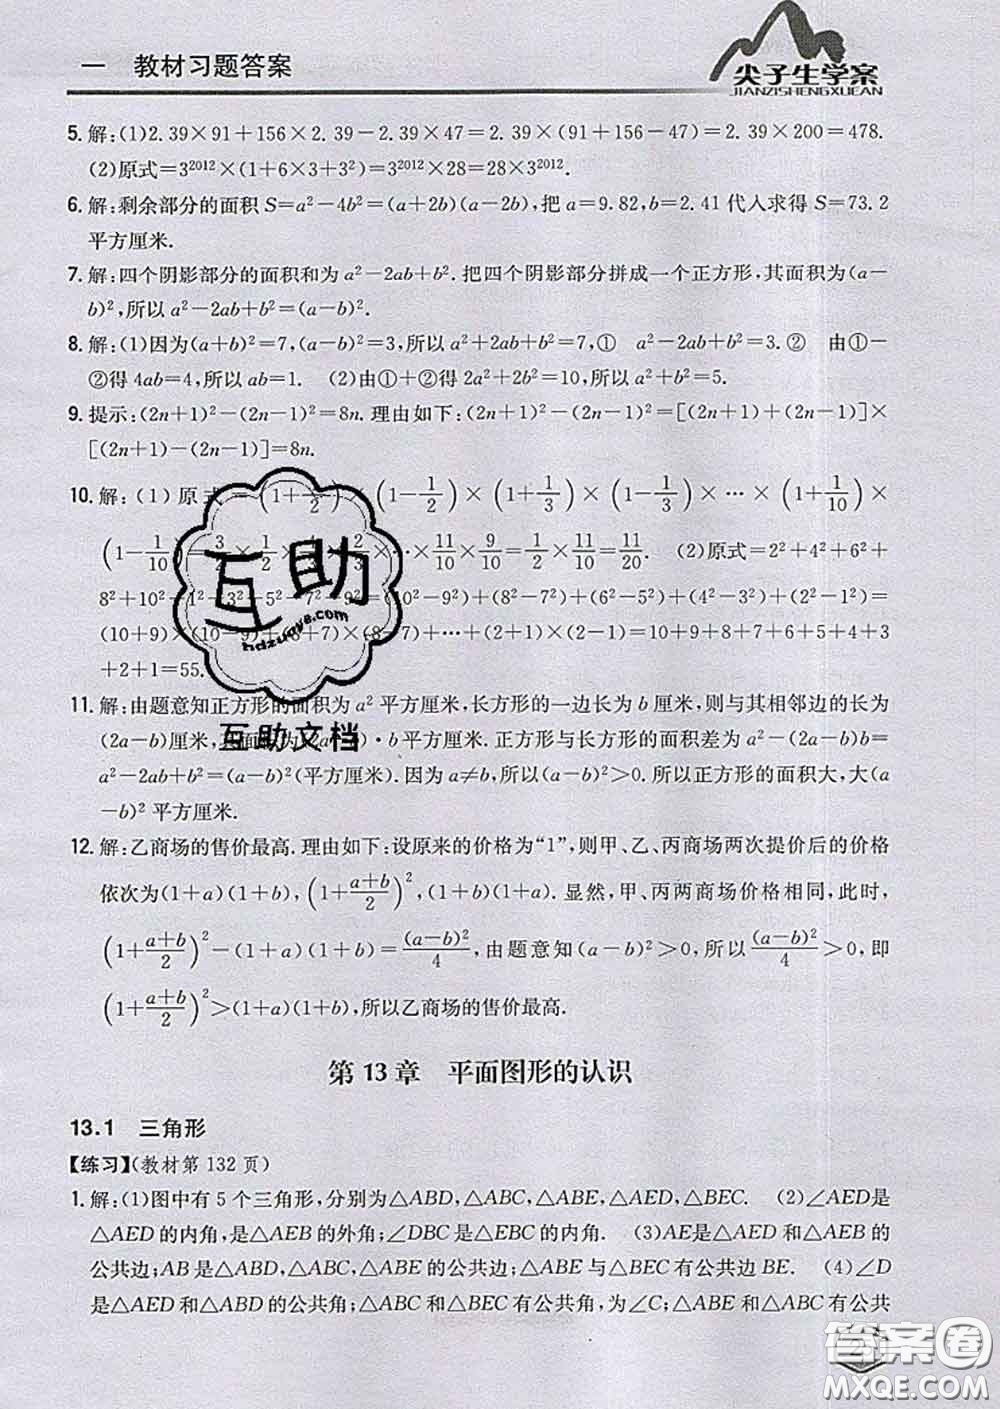 一 教材习题答案
尖子生学案
JIANZISHENGXUEAN
5. 解:(1)2.39×91+156×2.39-2.39×47=2.39×(91+156-47)=2.39×200=478.
(2)原式=3²⁰¹²×(1+6×3+3²)=3²⁰¹²×28=28×3²⁰¹².
6. 解:剩余部分的面积 S=a²-4b²=(a+2b)(a-2b),把 a=9.82,b=2.41 代入求得 S=73.2
平方厘米.
7. 解:四个阴影部分的面积和为 a²-2ab+b². 把四个阴影部分拼成一个正方形,其面积为(a-
b)²,所以 a²-2ab+b²=(a-b)².
8. 解:(1)因为(a+b)²=7,(a-b)²=3,所以 a²+2ab+b²=7,① a²-2ab+b²=3.② 由①-
②得 4ab=4,所以 ab=1. (2)由①+②得 2a²+2b²=10,所以 a²+b²=5.
9. 提示:(2n+1)²-(2n-1)²=8n. 理由如下:(2n+1)²-(2n-1)²=[(2n+1)+(2n-1)]×
[(2n+1)-(2n-1)]=8n.
10. 解:(1)原式=(1+1/2)×(1-1/2)×(1+1/3)×(1-1/3)×…×(1+1/10)×
(1-1/10)=3/2×1/2×4/3×2/3×…×11/10×9/10=1/2×11/10=11/20. (2)原式=2²+4²+6²+
8²+10²-1²-3²-5²-7²-9²=(10²-9²)+(8²-7²)+(6²-5²)+(4²-3²)+(2²-1²)=
(10+9)×(10-9)+(8+7)×(8-7)+…+(2+1)×(2-1)=10+9+8+7+6+5+4+3
+2+1=55.
11. 解:由题意知正方形的面积为 a² 平方厘米,长方形的一边长为 b 厘米,则与其相邻边的长为
(2a-b)厘米,其面积为(2a-b)·b 平方厘米. 正方形与长方形的面积差为 a²-(2a-b)b=
a²-2ab+b²=(a-b)²(平方厘米). 因为 a≠b,所以(a-b)²>0. 所以正方形的面积大,大(a
-b)² 平方厘米.
12. 解:乙商场的售价最高. 理由如下:设原来的价格为“1”,则甲、乙、丙商场两次提价后的价格
依次为(1+a)(1+b),(1+(a+b)/2)²,(1+b)(1+a). 显然,甲、丙两商场价格相同,此时,
(1+(a+b)/2)²-(1+a)(1+b)=(a-b)²/4,由题意知(a-b)²>0,所以(a-b)²/4>0,即
(1+(a+b)/2)²>(1+a)(1+b),所以乙商场的售价最高.
第 13 章 平面图形的认识
13.1 三角形
【练习】(教材第 132 页)
1. 解:(1)图中有 5 个三角形,分别为△ABD,△ABC,△ABE,△AED,△BEC. (2)∠AED是
△AED 的内角,是△AEB 的外角;∠DBC 是△EBC 的内角. (3)AE是△AED 和△AEB 的
公共边;AB 是△ABD,△ABC,△ABE 的公共边;△ABE 与△BEC 有公共边 BE. (4)∠D
是△AED 和△ABD 的公共角;△ABC 和△BEC 有公共角,为∠C;△ABE 和△ABC 有公共
互助
hdzuoye.com
互助文档
答案圈
MXQE.COM